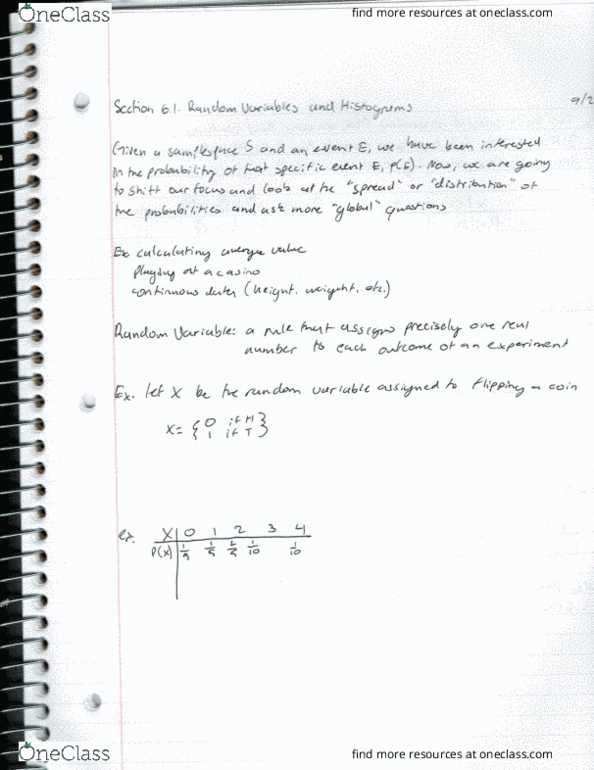 OneClass
find more resources at oneclass.com
Section 6.1. Random Variables and Histograms 9/2
Given a samplespace S and an event E, we have been interested
in the probability of that specific event E, P(E). Now, we are going
to shift our focus and look at the "spread" or "distribution" of
the probabilities and ask more "global" questions
Ex. calculating average value
playing at a casino
continuous data (height, weight, etc.)
Random Variable: a rule that assigns precisely one real
number to each outcome of an experiment
Ex. let X be the random variable assigned to flipping a coin
X = { 0 if H
1 if T }
ex. X 0 1 2 3 4
P(X) 1/5 1/5 2/5 1/10 1/10
OneClass
find more resources at oneclass.com